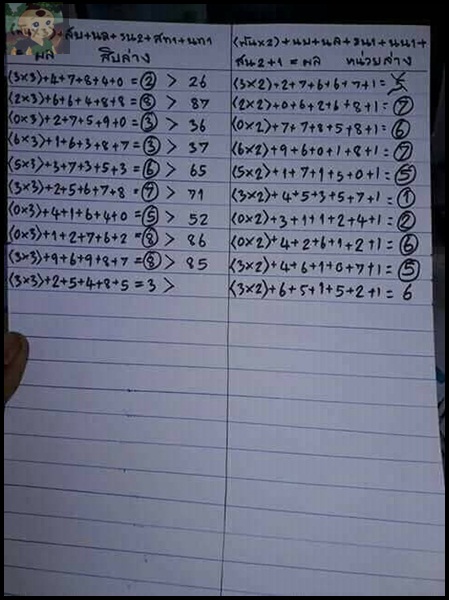 +สบ+นล+รน2+สท1+นท1 (พันx2)+นบ+นล+รน1+นน1+
ผล สิบล่าง สน2+1 = ผล หน่วยล่าง
(3x3)+4+7+8+4+0=2 > 26 (3x2)+2+7+6+6+7+1=5
(2x3)+6+6+4+8+8=8 > 87 (2x2)+0+6+2+6+8+1=7
(0x3)+2+7+5+9+0=3 > 36 (0x2)+7+7+8+5+8+1=6
(6x3)+1+6+3+8+7=3 > 37 (6x2)+9+6+0+1+8+1=7
(5x3)+3+7+3+5+3=6 > 65 (5x2)+1+7+1+5+0+1=5
(3x3)+2+5+6+7+8=7 > 71 (3x2)+4+5+3+5+7+1=1
(0x3)+4+1+6+4+0=5 > 52 (0x2)+3+1+1+2+4+1=2
(0x3)+1+2+7+6+2=8 > 86 (0x2)+4+2+6+1+2+1=6
(3x3)+9+6+9+8+7=8 > 85 (3x2)+4+6+1+0+7+1=5
(3x3)+2+5+4+8+5=3 > (3x2)+6+5+1+5+2+1=6